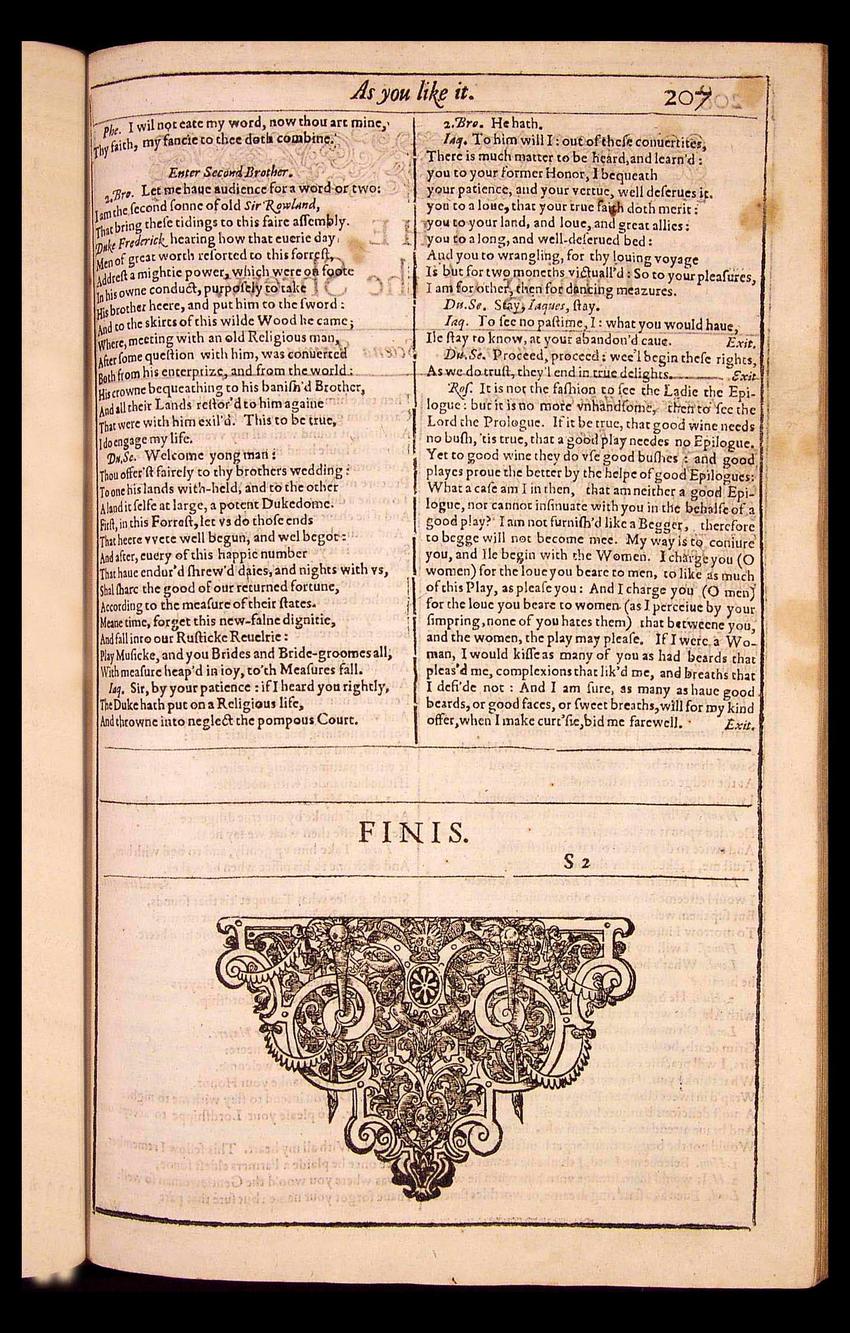 As you like it. 207
Phe. I wil not eate my word, now thou art mine,
Thy faith, my fancie to thee doth combine.
Enter Second Brother.
2.Bro. Let me haue audience for a word or two:
I am the second sonne of old Sir Rowland,
That bring these tidings to this faire assembly.
Duke Frederick hearing how that euerie day
Men of great worth resorted to this forrest,
Addrest a mightie power, which were on foote
In his owne conduct, purposely to take
His brother heere, and put him to the sword:
And to the skirts of this wilde Wood he came;
Where, meeting with an old Religious man,
After some question with him, was conuerted
Both from his enterprize, and from the world:
His crowne bequeathing to his banish'd Brother,
And all their Lands restor'd to him againe
That were with him exil'd. This to be true,
I do engage my life.
Du.Se. Welcome yong man:
Thou offer'st fairely to thy brothers wedding:
To one his lands with-held, and to the other
A land it selfe at large, a potent Dukedome.
First, in this Forrest, let vs do those ends
That heere vvete well begun, and wel begot:
And after, euery of this happie number
That haue endur'd shrew'd daies, and nights with vs,
Shal share the good of our returned fortune,
According to the measure of their states.
Meane time, forget this new-falne dignitie,
And fall into our Rusticke Reuelrie:
Play Musicke, and you Brides and Bride-groomes all,
With measure heap'd in ioy, to'th Measures fall.
Iaq. Sir, by your patience: if I heard you rightly,
The Duke hath put on a Religious life,
And throwne into neglect the pompous Court.
2.Bro. He hath.
Iaq. To him will I: out of these conuertites,
There is much matter to be heard, and learn'd:
you to your former Honor, I bequeath
your patience, and your vertue, well deserues it.
you to a loue, that your true faith doth merit:
you to your land, and loue, and great allies:
you to a long, and well-deserued bed:
And you to wrangling, for thy louing voyage
Is but for two moneths victuall'd: So to your pleasures,
I am for other, then for dancing meazures.
Du.Se. Stay, Iaques, stay.
Iaq. To see no pastime, I: what you would haue,
Ile stay to know, at your abandon'd caue. Exit.
Du.Se. Proceed, proceed: wee'l begin these rights,
As we do trust, they'l end in true delights. Exit
Ros. It is not the fashion to see the Ladie the Epi-
logue: but it is no more vnhandsome, then to see the
Lord the Prologue. If it be true, that good wine needs
no bush, 'tis true, that a good play needes no Epilogue.
Yet to good wine they do vse good bushes: and good
playes proue the better by the helpe of good Epilogues:
What a case am I in then, that am neither a good Epi-
logue, nor cannot insinuate with you in the behalfe of a
good play? I am not furnish'd like a Begger, therefore
to begge will not become mee. My way is to coniure
you, and Ile begin with the Women. I charge you (O
women) for the loue you beare to men, to like as much
of this Play, as please you: And I charge you (O men)
for the loue you beare to women (as I perceiue by your
simpring, none of you hates them) that betweene you,
and the women, the play may please. If I were a Wo-
man, I would kisse as many of you as had beards that
pleas'd me, complexions that lik'd me, and breaths that
I defi'de not: And I am sure, as many as haue good
beards, or good faces, or sweet breaths, will for my kind
offer, when I make curt'sie, bid me farewell. Exit.
FINIS.
S 2